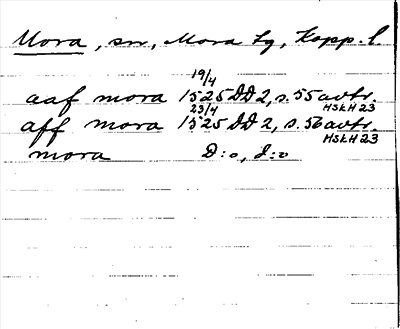 Mora, sn, Mora tg, Kopp. l.
19/4
aaf mora 1525 DD2, s. 55 avtr.
HSLH 23
23/4
aff mora 1525 DD2, s. 56 avtr.
HSLH 23
mora D:o, d:o